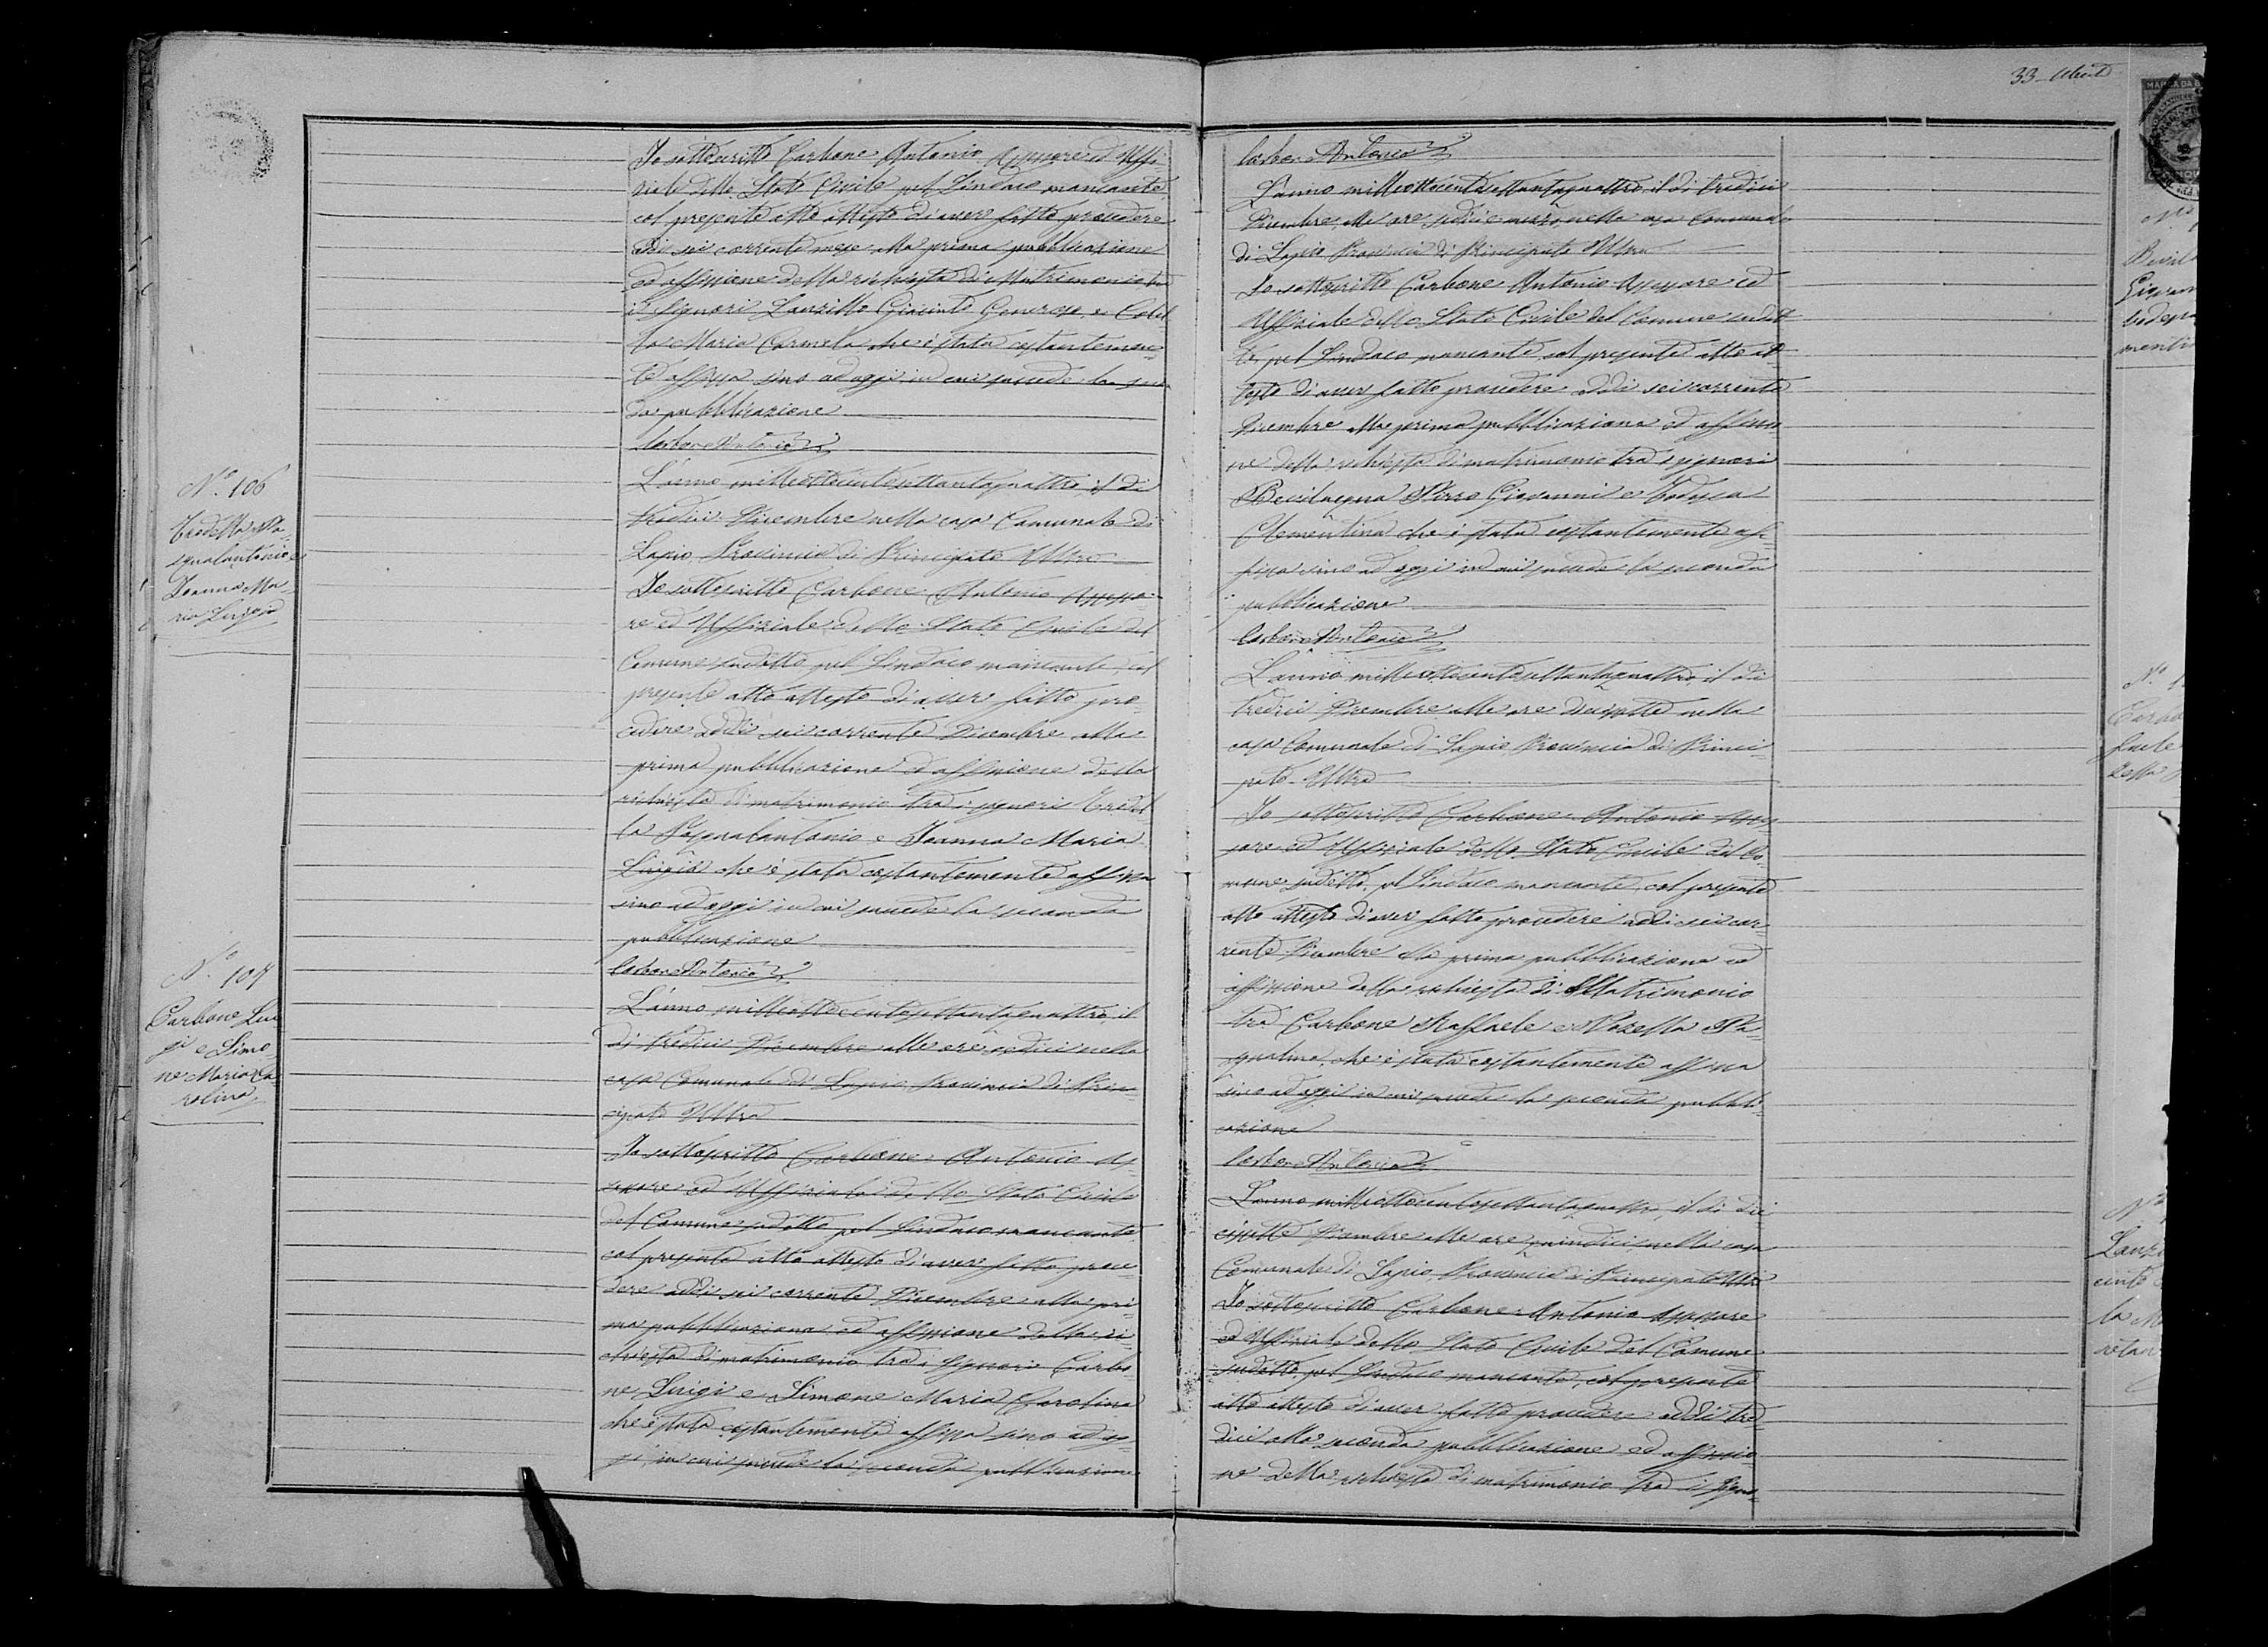 Io sottoscritto Carbone Antonio Assessore ed Uffi-
ziale dello Stato Civile pel Sindaco mancante
col presente atto attesto di aver fatto procedere
addì sei corrente mese alla prima pubblicazione
ed affissione della richiesta di Matrimonio tra
i Signori Lanzillo Giacinto Generoso e Colel
la Maria Carmela che è stata costantemen-
te affissa sino ad oggi in cui procede la secon
da pubblicazione
Carbone Antonio
N.º 106
Tredella Pa-
squalantonio e
Ioanna Ma-
ria Luigia
L'anno milleottocentosettantaquattro il dì
tredici Dicembre nella casa Comunale di
Lapio Provincia di Principato Ultra
Io sottoscritto Carbone Antonio Assesso-
re ed Uffiziale dello Stato Civile del
Comune sudetto pel Sindaco mancante, col
presente atto attesto di aver fatto pro-
cedere addì sei corrente Dicembre alla
prima pubblicazione ed affissione della
richiesta di matrimonio tra i signori Tredel
la Pasqualantonio e Ioanna Maria
Luigia che è stata costantemente affissa
sino ad oggi in cui procede la seconda
pubblicazione
Carbone Antonio
N.º 107
Carbone Lui
gi e Simo-
ne Maria Ca
rolina
L'anno milleottocentosettantaquattro, il
dì tredici Dicembre alle ore sedici nella
casa Comunale di Lapio Provincia di Prin-
cipato Ultra
Io sottoscritto Carbone Antonio As-
sessore ed Uffiziale dello Stato Civile
del Comune sudetto pel Sindaco mancante
col presente atto attesto di aver fatto proce-
dere addì sei corrente Dicembre alla pri
ma pubblicazione ed affissione della ri
chiesta di matrimonio tra i Signori Carbo
ne Luigi e Simone Maria Carolina
che è stata costantemente affissa sino ad og-
gi, in cui procede la seconda pubblicazione
33
Carbone Antonio
L'anno milleottocentosettantaquattro, il dì tredici
Dicembre, alle ore sedici e nella casa Comunale
di Lapio Provincia di Principato Ultra
Io sottoscritto Carbone Antonio Assessore ed
Uffiziale dello Stato Civile del Comune sudet
to pel Sindaco mancante, col presente atto at-
testo di aver fatto procedere addì sei corrente
Dicembre alla prima pubblicazione ed affissio
ne della richiesta di matrimonio tra i signori
Bevilacqua Pirro Giovanni e
Clementina che è stata costantemente af-
fissa sino ad oggi in cui procede la seconda
pubblicazione
Carbone Antonio
L'anno milleottocentosettantaquattro, il dì
tredici Dicembre alle ore diciasette nella
casa Comunale di Lapio Provincia di Princi
pato Ultra
Io sottoscritto Carbone Antonio Asses-
sore ed Uffiziale dello Stato Civile del Co-
mune sudetto, pel Sindaco mancante, col presente
atto attesto di aver fatto procedere addì sei cor-
rente Dicembre alla prima pubblicazione ed
affissione della richiesta di Matrimonio
tra Carbone Raffaele e Rozessa Pa-
squalina, che è stata costantemente affissa
sino ad oggi in cui procede la seconda pubbli-
cazione
Carbone Antonio
L'anno milleottocentosettantaquattro, il dì dici
assette Dicembre alle ore quindici nella casa
Comunale di Lapio Provincia di Principato Ultra
Io sottoscritto Carbone Antonio Assessore
ed Uffiziale dello Stato Civile del Comune
sudetto pel Sindaco mancante, col presente
atto attesto di aver fatto procedere addì tre-
dici alla seconda pubblicazione ed affissio-
ne della richiesta di matrimonio tra i Signo-